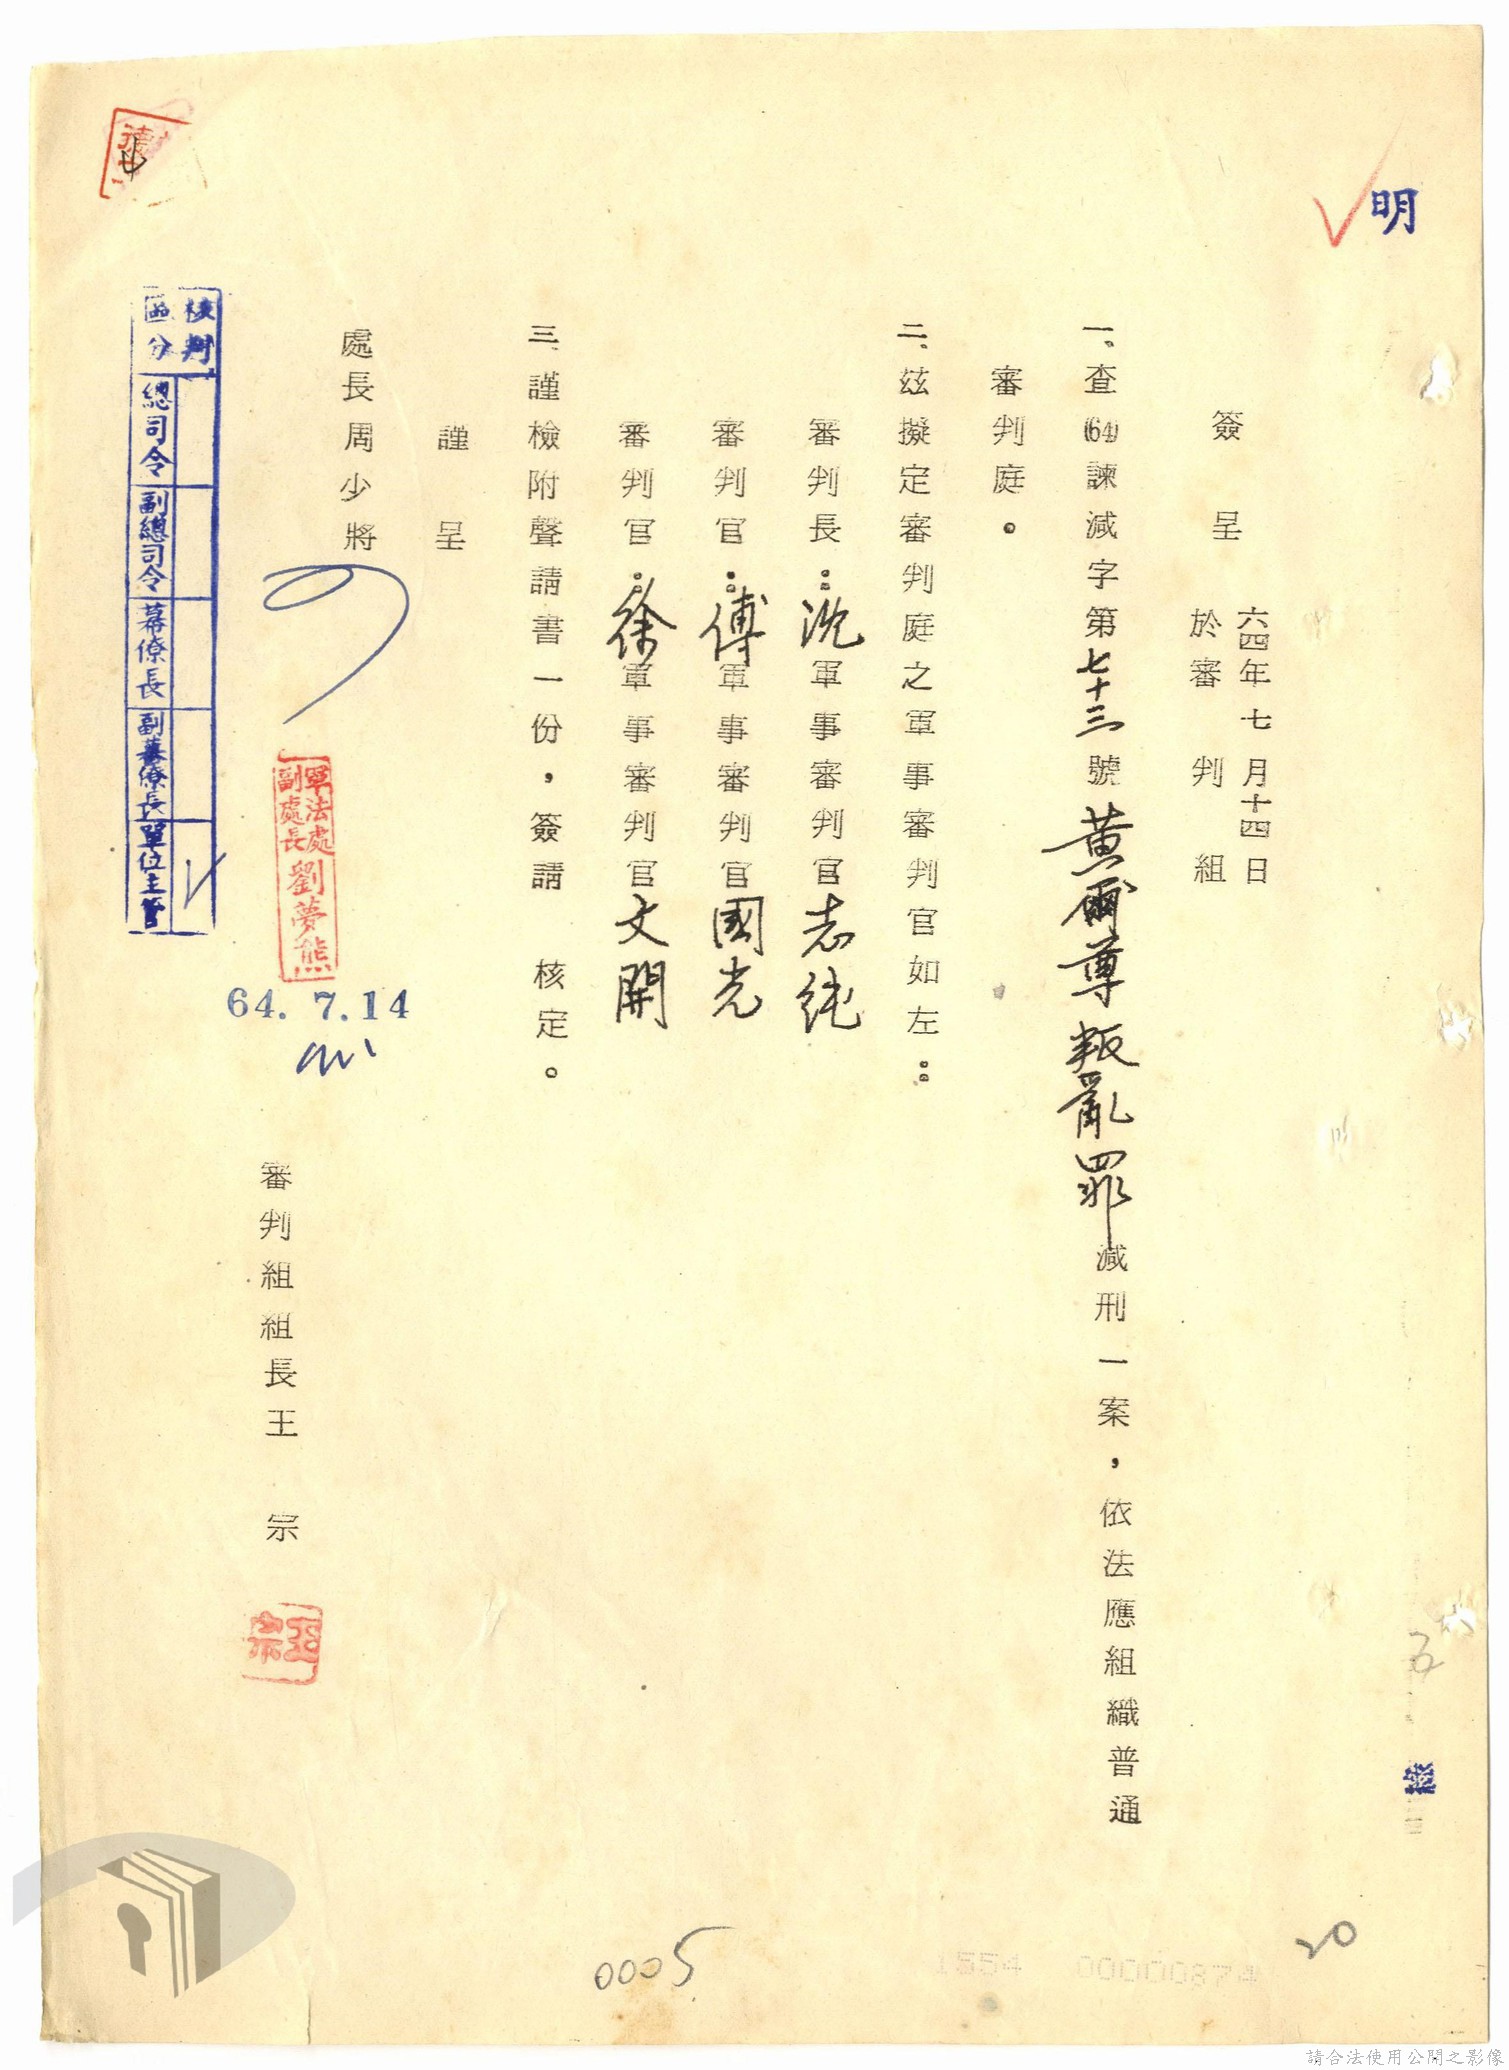 明
簽呈
六四年七月十四日
於審判組
一、查(64)諫減字第七十三號黃爾尊叛亂罪減刑一案，依法應組織普通
審判庭。
二、茲擬定審判庭之軍事審判官如左：
審判長：沈軍事審判官志純
審判官：傅軍事審判官國光
審判官：徐軍事審判官文開
三、謹檢附聲請書一份，簽請　核定。
謹呈
處長周少將
軍法處
副處長
劉夢熊
64. 7. 14
審判組組長王　宗
王宗
核判
區分
總司令
副總司令
幕僚長
副幕僚長
單位主管
0005
1554 00000874
20
請合法使用公開之影像